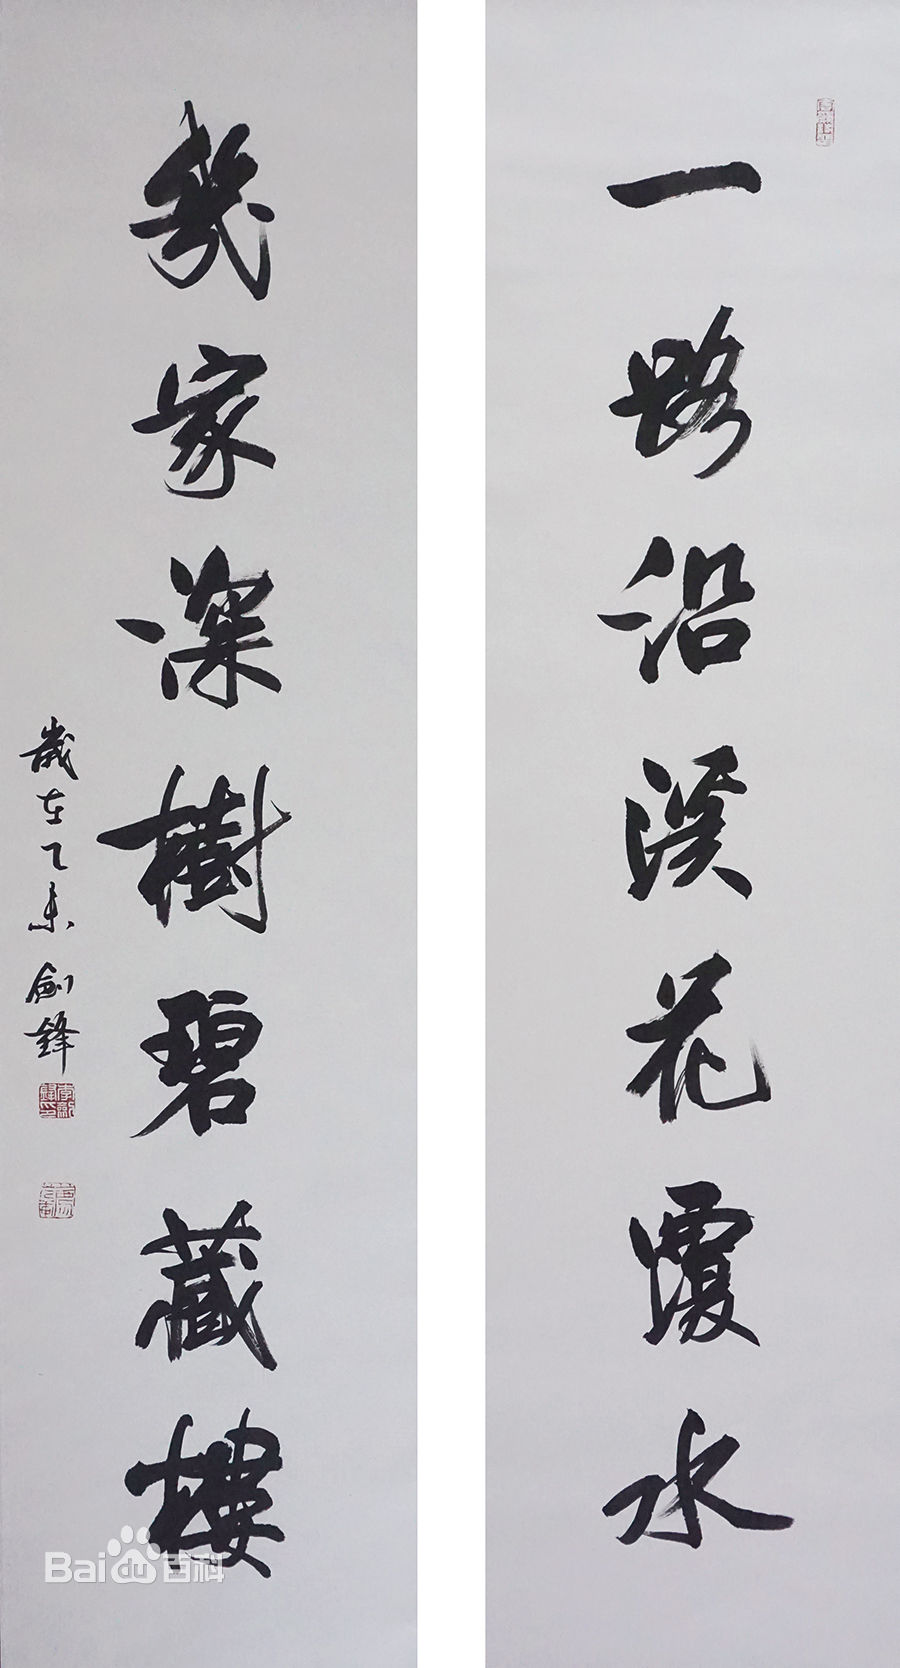 一路沿溪花覆水
幾家深樹碧藏樓
歲在乙未劍鋒
Bai百科